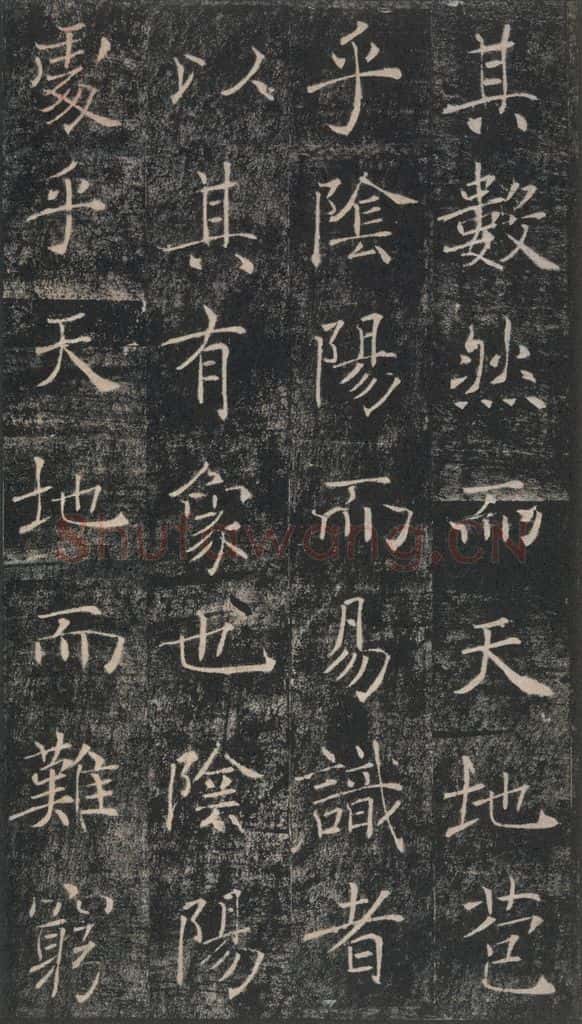 其數然而天地苞
乎陰陽而易識者
以其有象也陰陽
處乎天地而難窮
Shufawang.CN